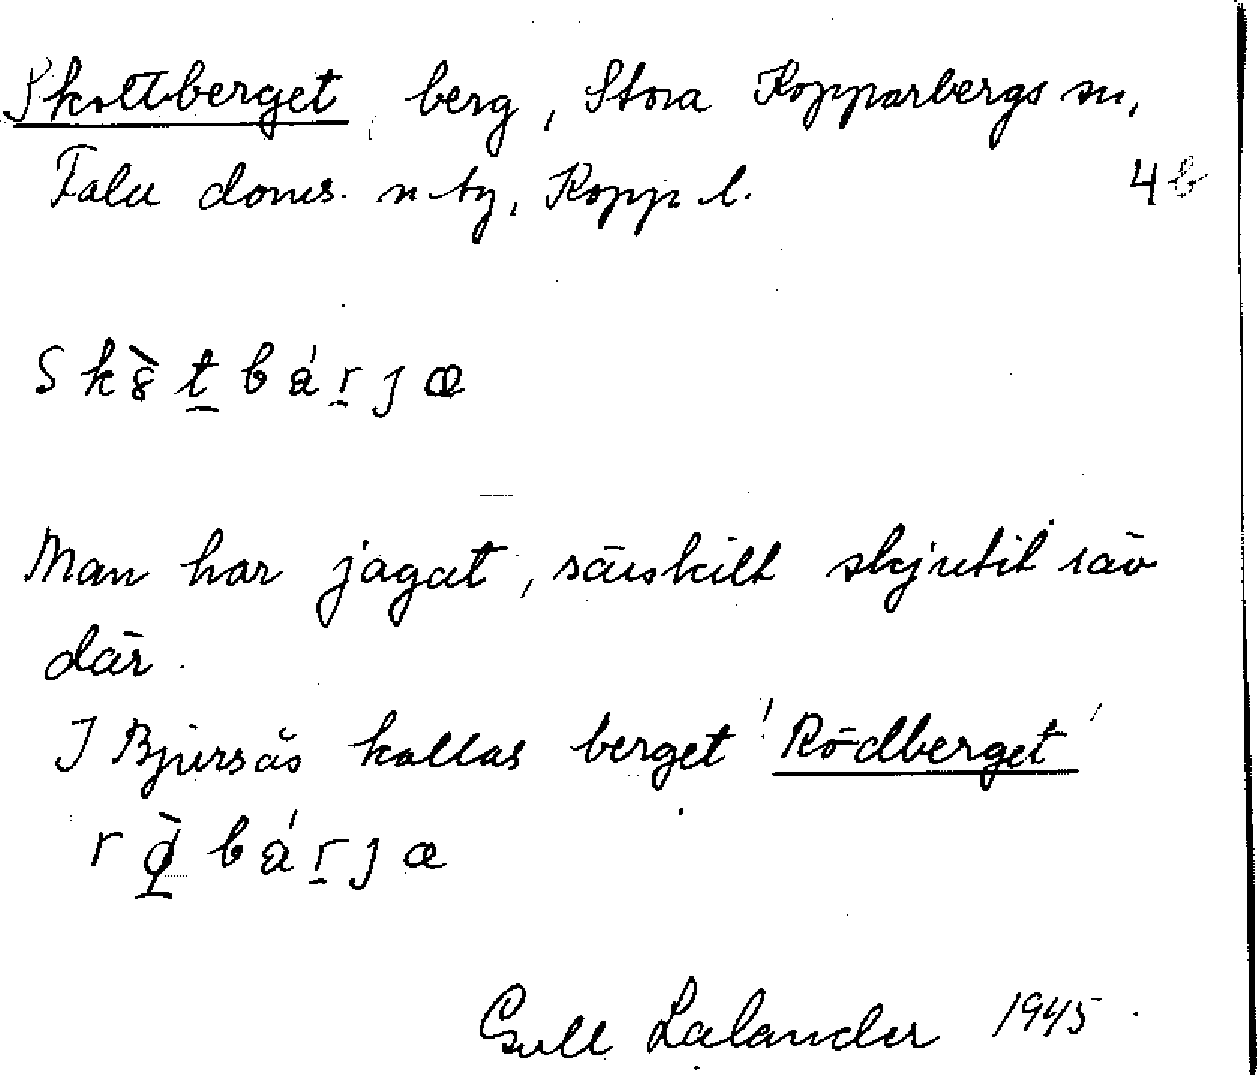 Skottberget, berg, Stora Kopparbergs sn,
Falu doms. n tg, Kopp l.
4 b
Sk8̀t̲bár̲jæ
Man har jagat, särskilt skjutit räv
där.
I Bjursås kallas berget 'Rödberget'
rø̲̀bár̲jæ
Gull Lalander 1945